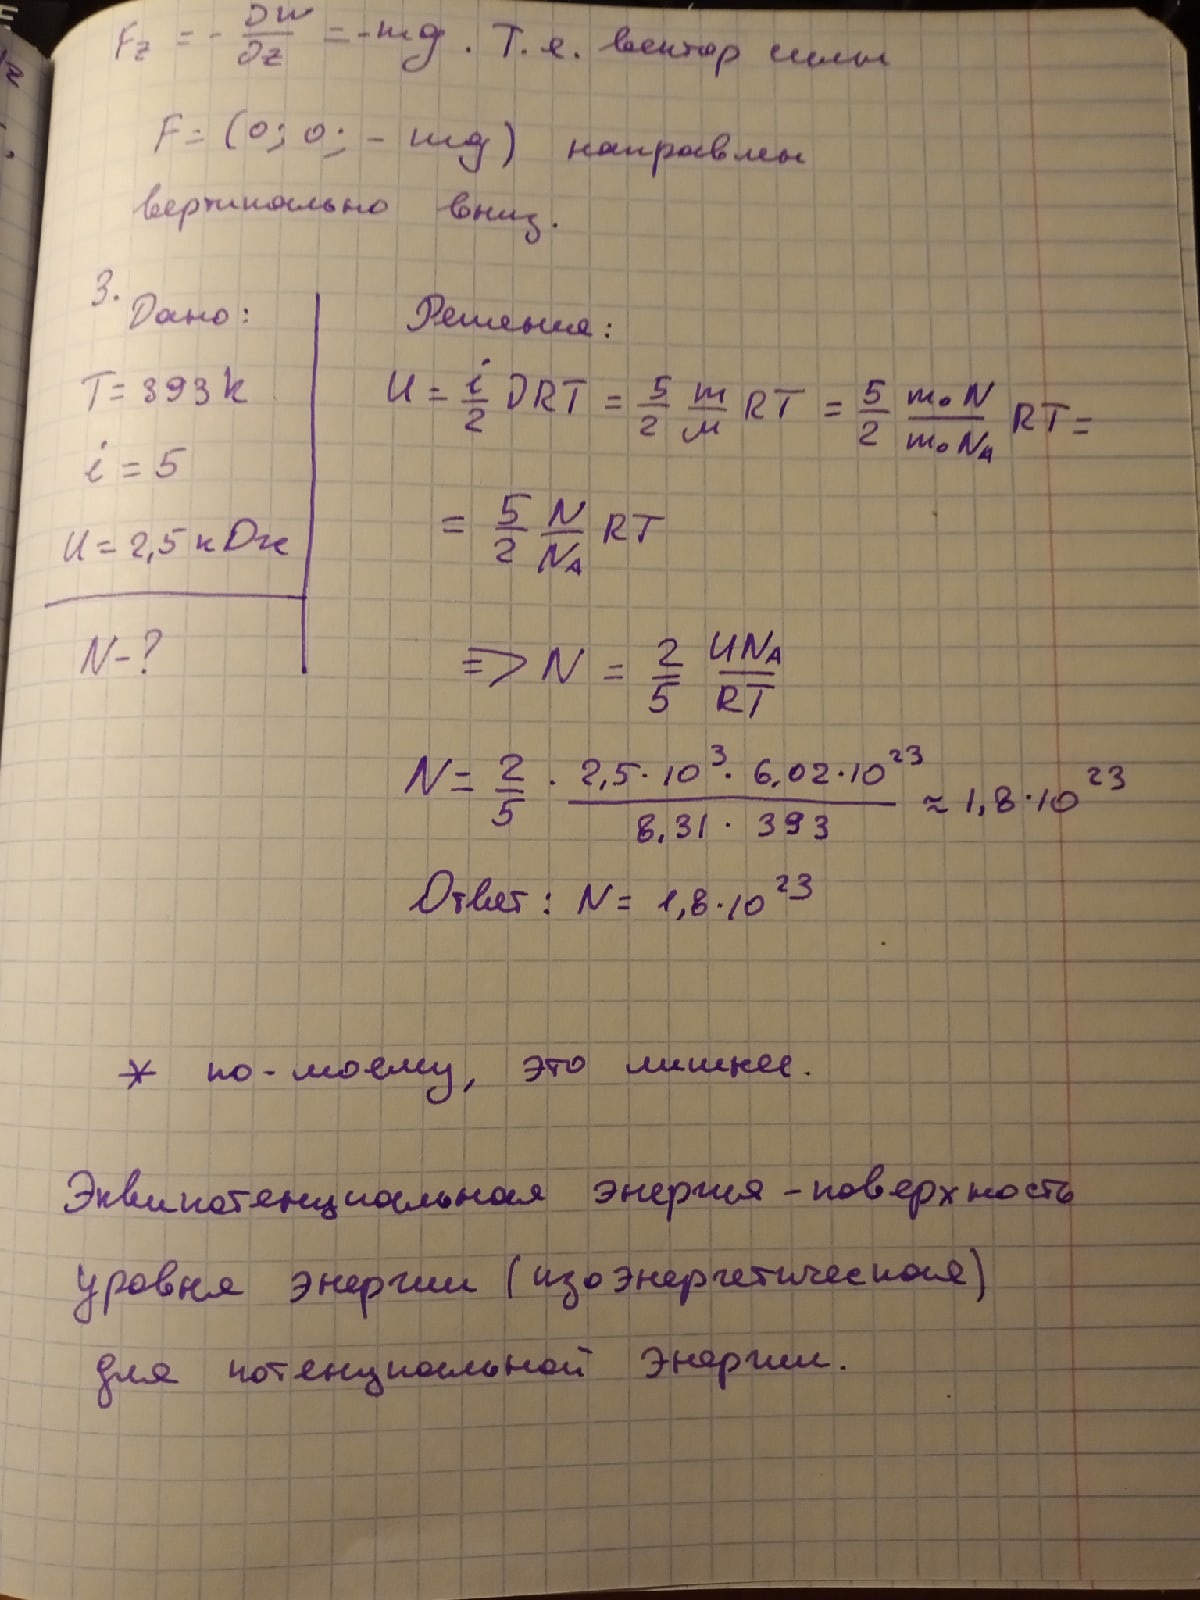 Fz = - ∂W/∂z = -mg. Т.е. вектор силы
F = (0; 0; - mg) направлен
вертикально вниз.
3.
Дано:
T = 393 K
i = 5
U = 2,5 кДж
N - ?
Решение:
U = i/2 νRT = 5/2 m/μ RT = 5/2 m₀N/m₀N_A RT =
= 5/2 N/N_A RT
=> N = 2/5 UN_A/RT
N = 2/5 · 2,5·10³·6,02·10²³/8,31·393 ≈ 1,8·10²³
Ответ: N = 1,8·10²³
* по-моему, это лишнее.
Эквипотенциальная энергия - поверхность
уровня энергии (изоэнергетическая)
для потенциальной энергии.